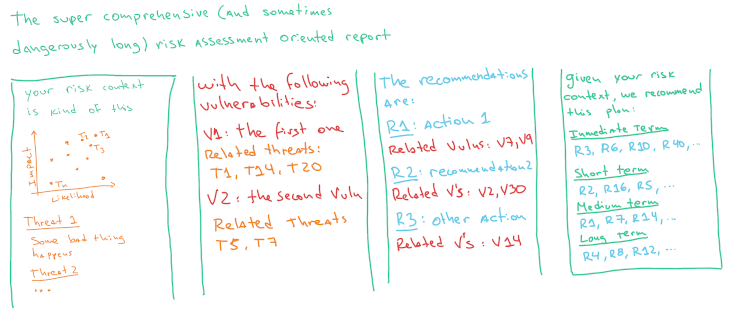 The super comprehensive (and sometimes
dangerously long) risk assessment oriented report
your risk context
is kind of this
Impact
T2
T1
T3
Tn
Likelihood
Threat 1
Some bad thing
happens
Threat 2
...
with the following
vulnerabilities:
V1: the first one
Related threats:
T1, T14, T20
V2: the second vuln
Related Threats
T5, T7
The recommendations
are:
R1: Action 1
Related Vulns: V7, V9
R2: recommendation2
Related V's: V2, V30
R3: other Action
Related V's: V14
given your risk
context, we recommend
this plan:
Inmediate Term
R3, R6, R10, R40,..
Short term
R2, R16, R5, ...
Medium term
R1, R7, R14,...
Long Term
R4, R8, R12, ...